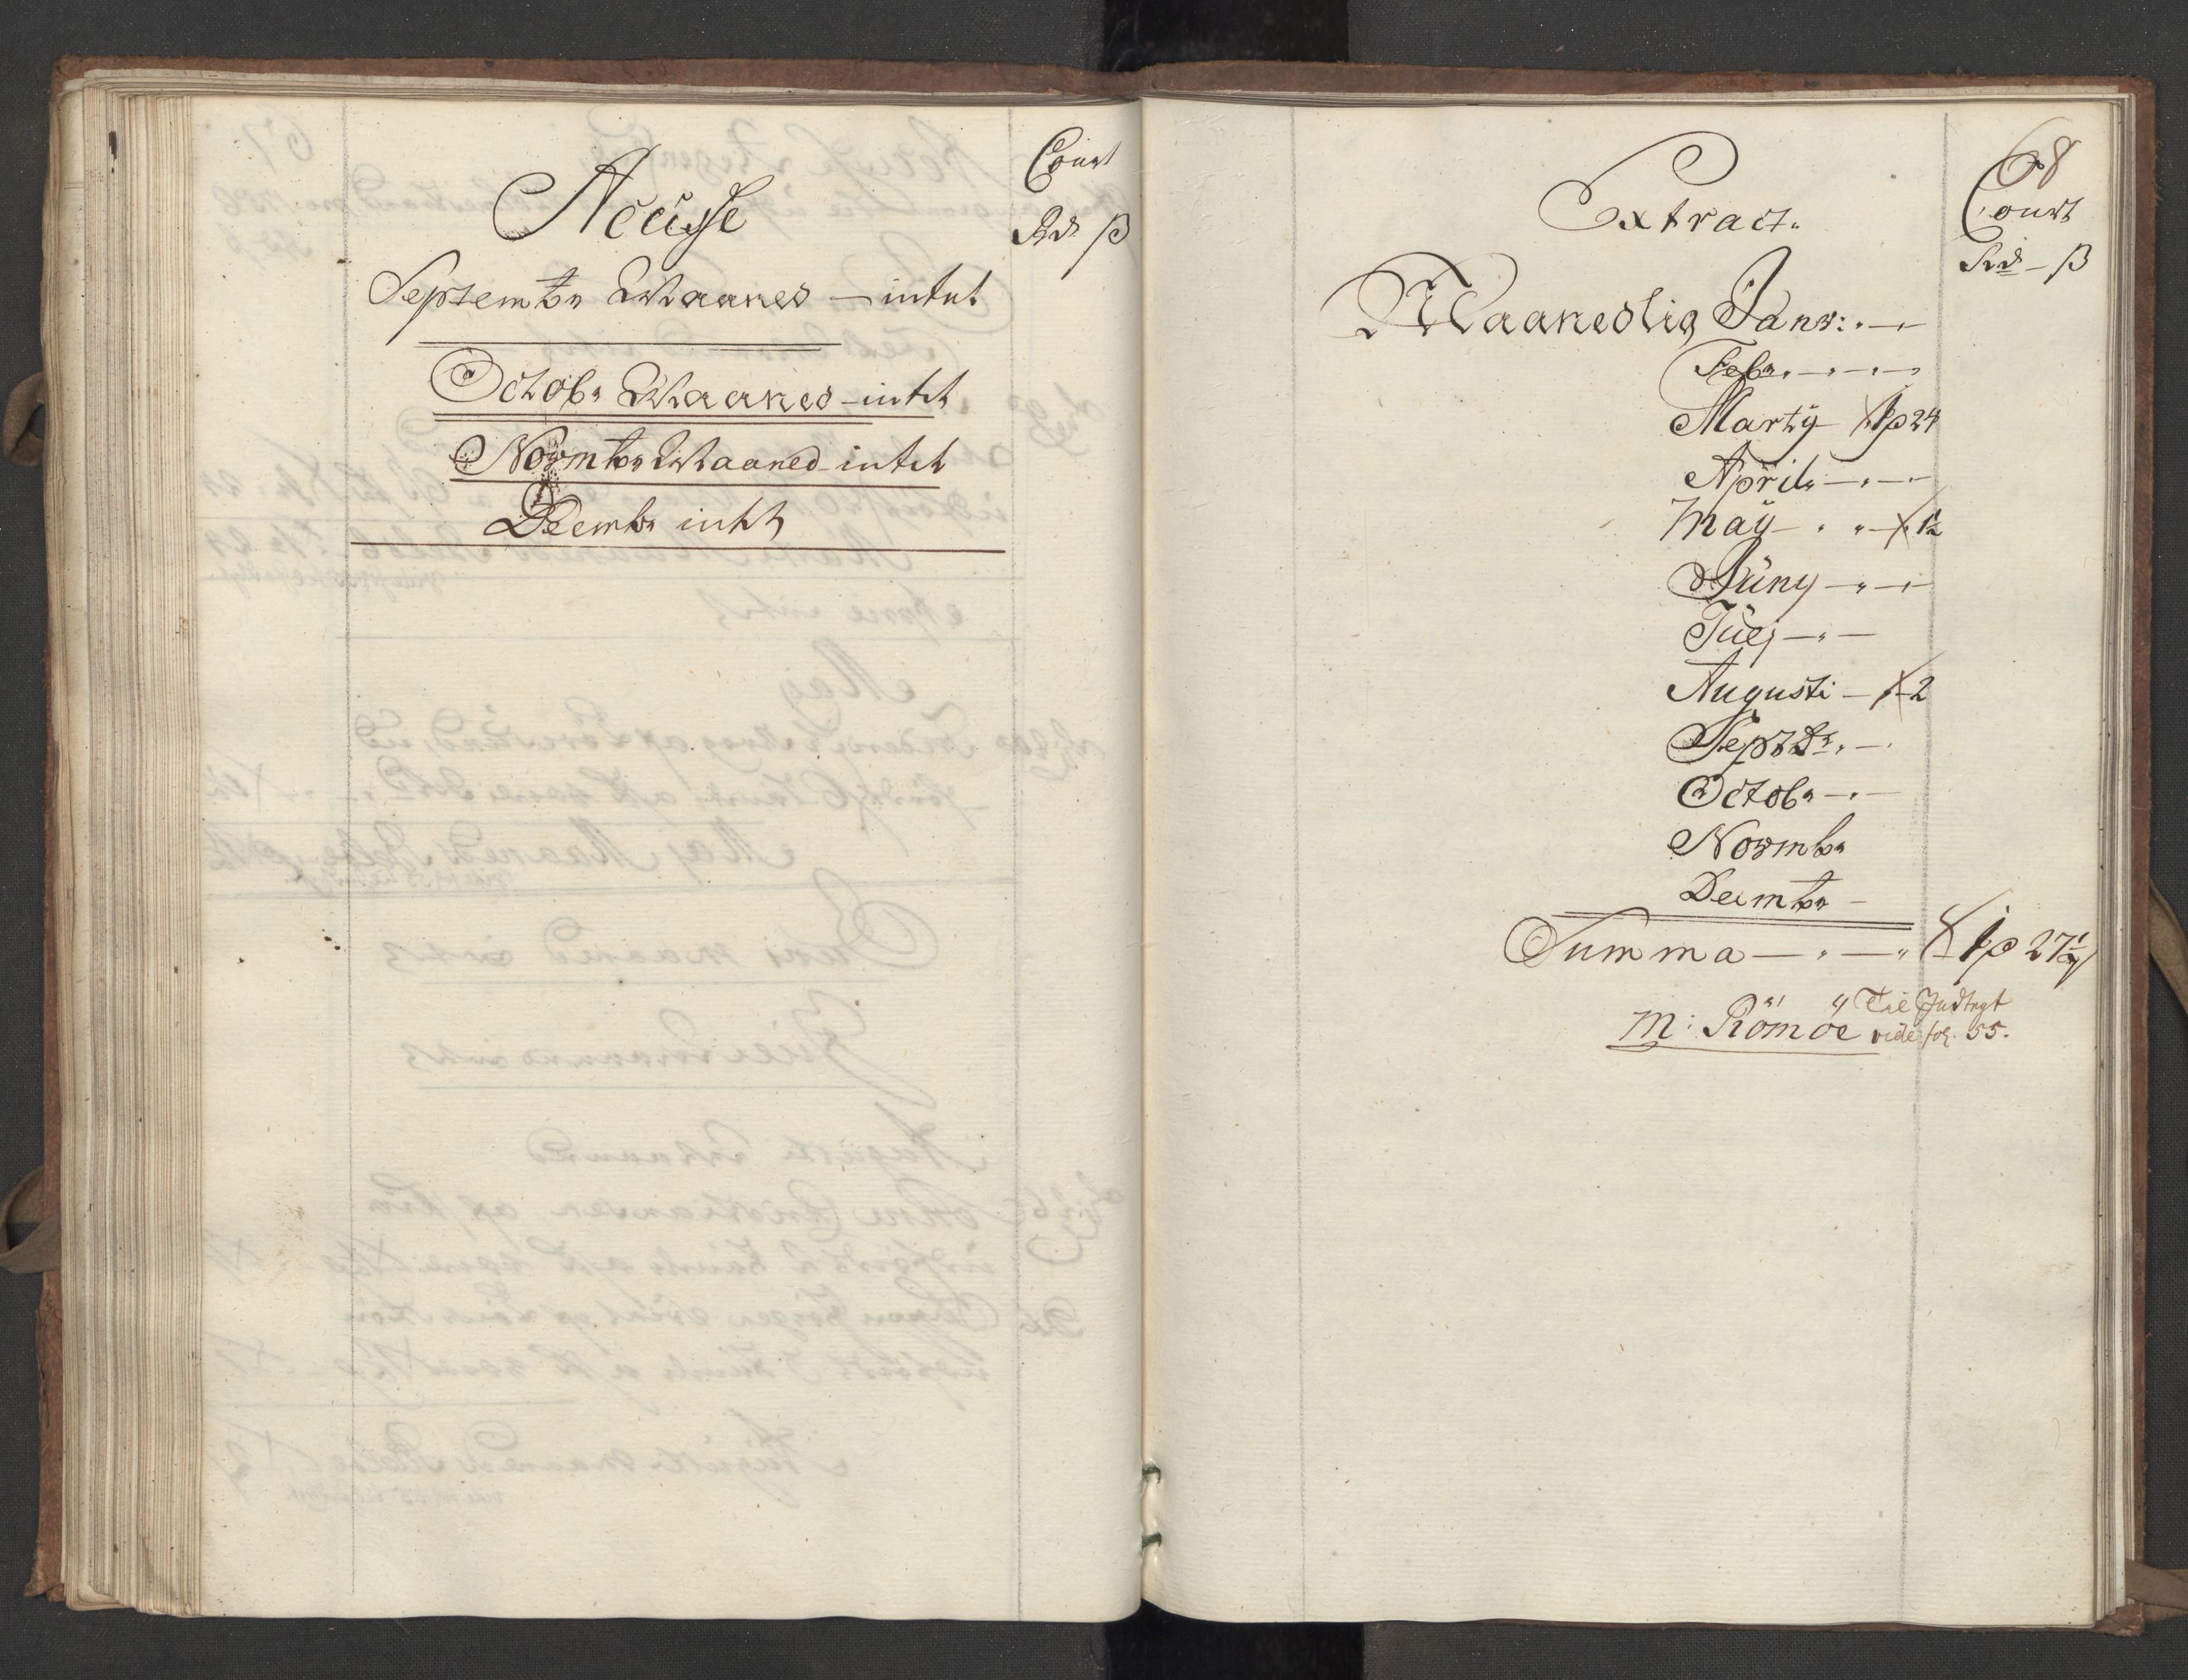 Acciisse
Court
Rd ß
Septembr Maaned — intet
Octobr Maaned - intet
Novembr Maaned - intet
Decembr intet
68
Extract.
Court
Rd - ß
Maanedlig Janr: . —
Febr. . — . — . —
Martÿ 1 ß 24
April — . —
Maÿ — . — 1½
Jüny — . —
Jülj — . —
Augusti — 2
Septbr. —
Octobr — . —
Novembr
Decembr —
Summa — . — 1 ß 27½
Til Indtegt
M: Römöe vide fol. 55.